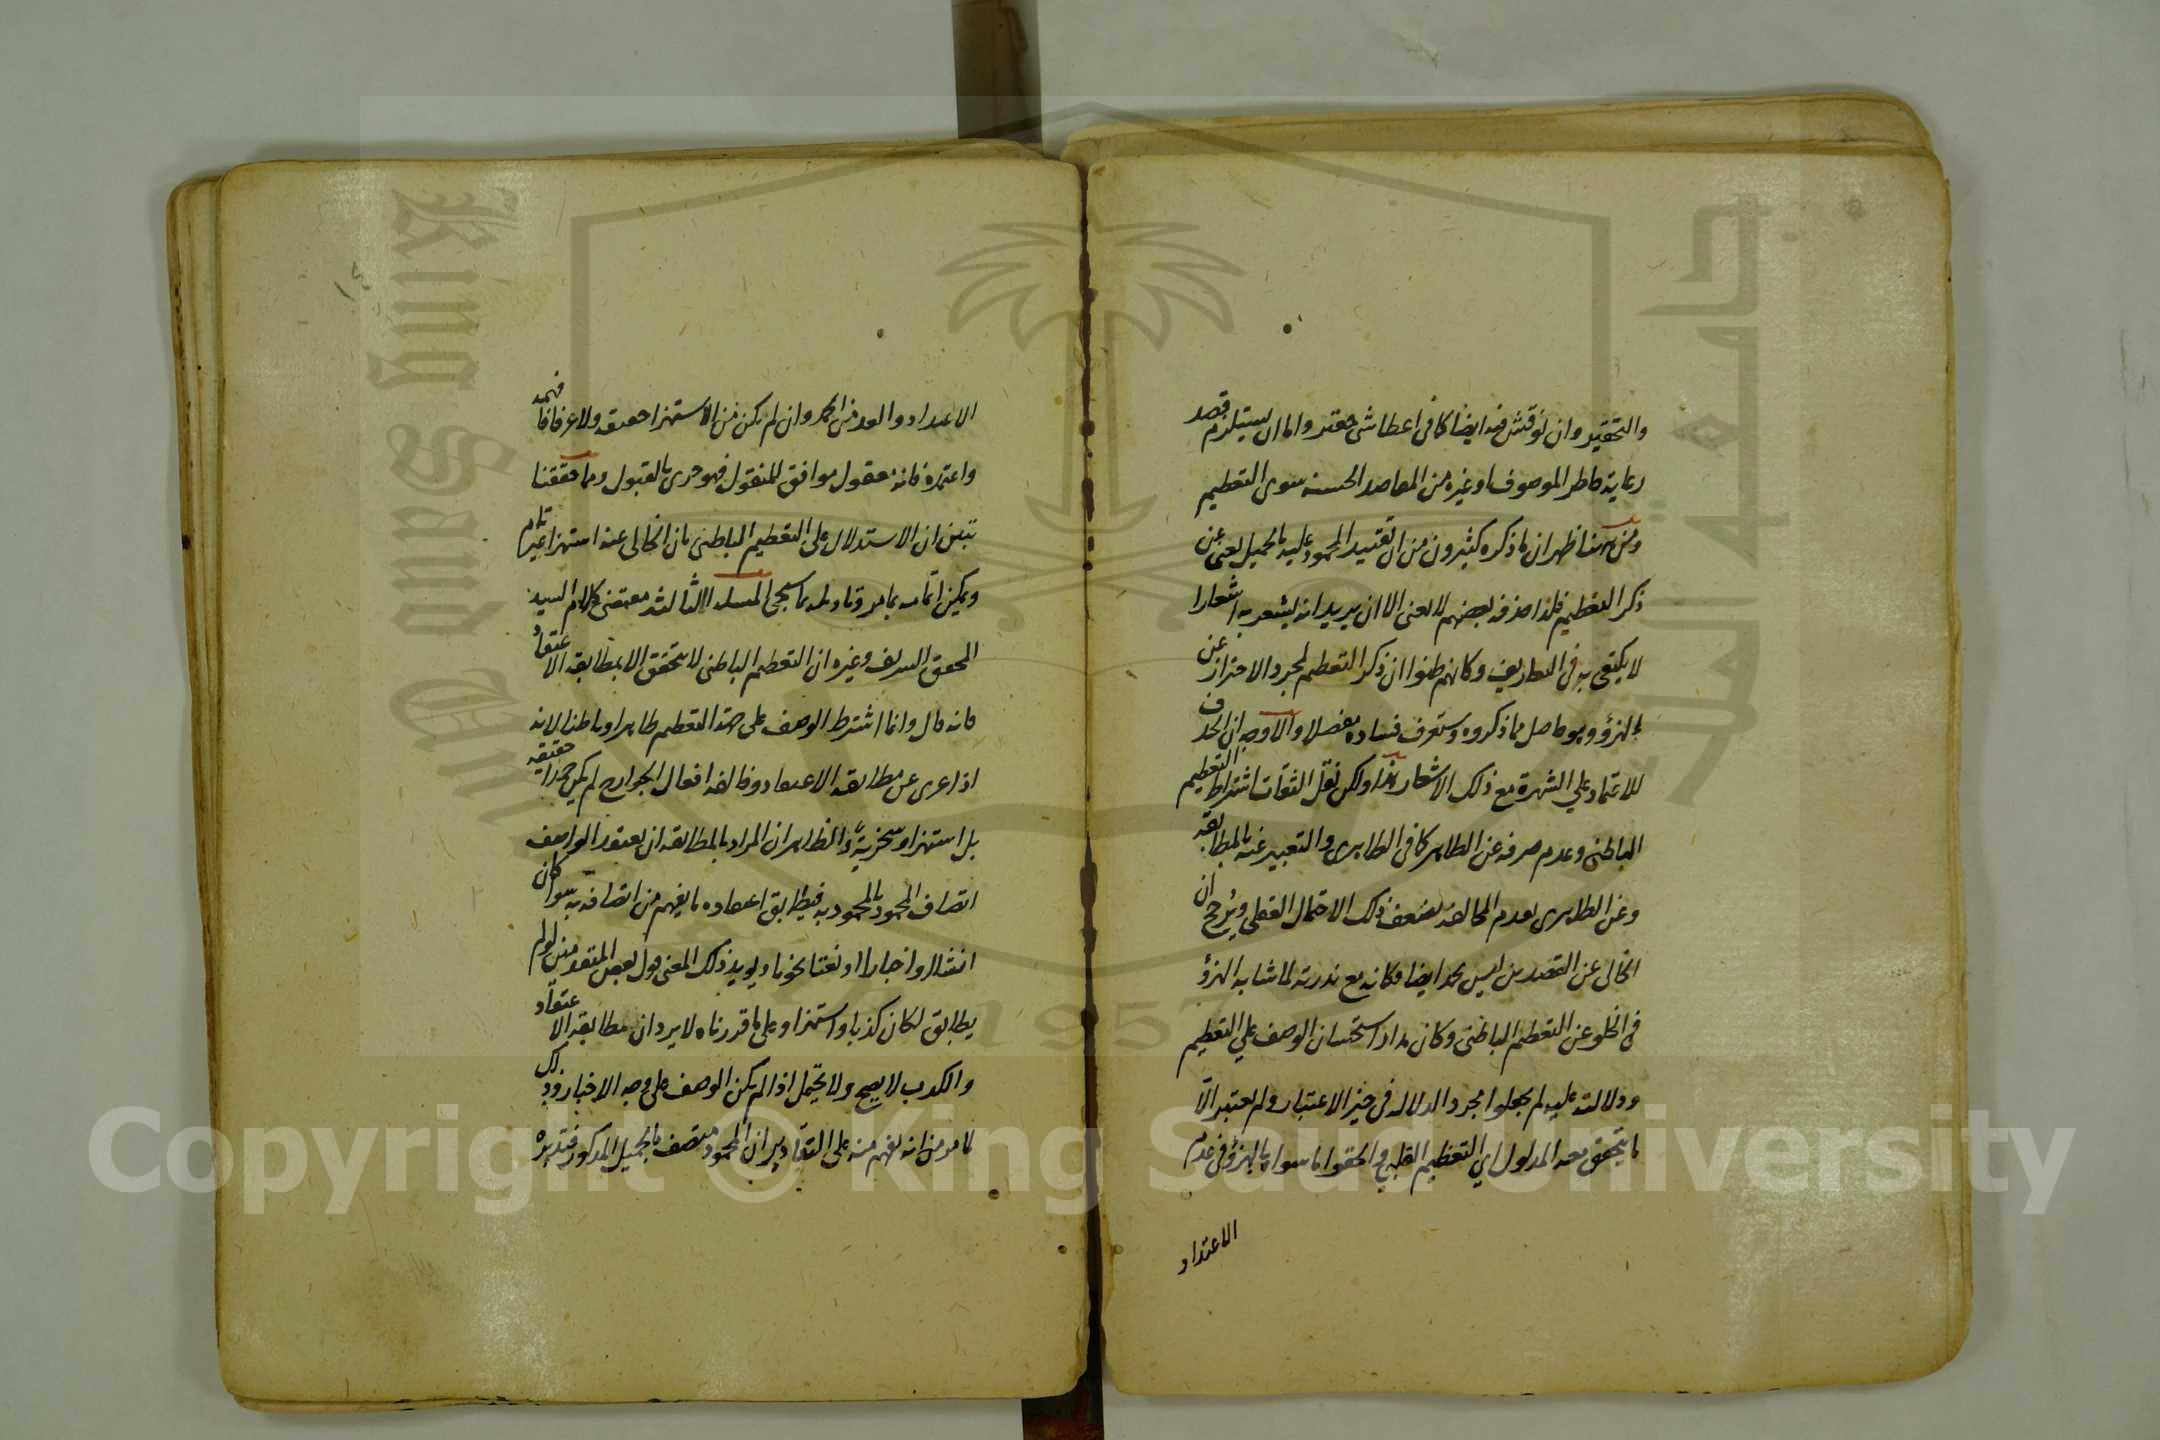 والتحقير وان نوقش فيه ايضا كما في اعطا شئ حقير واما ان يستلزم قصد
رعاية خاطر الموصوف او غيره من المقاصد الحسنة سوى التعظيم
ومن هنا ظهر ان ما ذكره كثيرون من ان تقييد المحمود عليه بالجميل يغني عن
ذكر التعظيم فلذا حذفه بعضهم لا يغني الا ان يريد انه يشعر به اشعارا
لا يكتفى به في التعاريف وكانهم ظنوا ان ذكر التعظيم لمجرد الاحتراز عن
الهزؤ وهو حاصل مما ذكروه وستعرف فساده مفصلا والاوجه ان الحذف
للاعتماد على الشهرة مع ذلك الاشعار هذا ولكن نقل الثقات اشتراط التعظيم
الباطني وعدم صرفه عن الظاهر كما في الظاهري والتعبير عنه بالمطابقة
وعن الظاهري بعدم المخالفة يضعف ذلك الاحتمال العقلي ويرجح ان
الخالى عن القصدين ليس بحمد ايضا وكانه مع ندرته لما شابه الهزؤ
في الخلو عن التعظيم الباطني وكان مدار استحسان الوصف على التعظيم
ودلالته عليه لم يجعلوا مجرد الدلالة في حيز الاعتبار ولم يعتبر الا
ما يتحقق معه المدلول اي التعظيم القلبي والحقوا ما سواه بالهزؤ في عدم
الاعتداد
الاعتداد والعد من الحمد وان لم يكن من الاستهزا حقيقة ولا عرفا فافهمه
واعتمره فانه معقول موافق للمنقول فهو حرى بالقبول ومما حققنا
تبين ان الاستدلال على التعظيم الباطني بان الخالى عنه استهزا غير تام
ويمكن اتمامه بما مر وتاويله بما سيجي المسئلة الثالثة مقتضى كلام السيد
المحقق الشريف وغيره ان التعظيم الباطني لا يتحقق الا بمطابقة الاعتقاد
فانه قال وانما اشترط الوصف على جهة التعظيم ظاهرا وباطنا لانه
اذا عرى عن مطابقة الاعتقاد وخالفه افعال الجوارح لم يكن حمدا حقيقة
بل استهزا وسخرية والظاهر ان المراد بالمطابقة ان يعتقد الواصف
اتصاف المحمود بالمحمود به فيطابق اعتقاده ما يفهم من اتصافه به سوا كان
انشا او اخبارا او نعتا نحويا ويويد ذلك المعنى قول بعض المتقدمين لو لم
يطابق لكان كذبا واستهزا وعلى ما قررناه لا يرد ان مطابقة الاعتقاد
والكذب لا يصح ولا يحتمل اذا لم يكن الوصف على وجه الاخبار وذلك
لما مر من انه يفهم منه على التقادير ان المحمود متصف بالجميل المذكور فتدبره
King Saud University
جامعة الملك
1957
Copyright © King Saud University